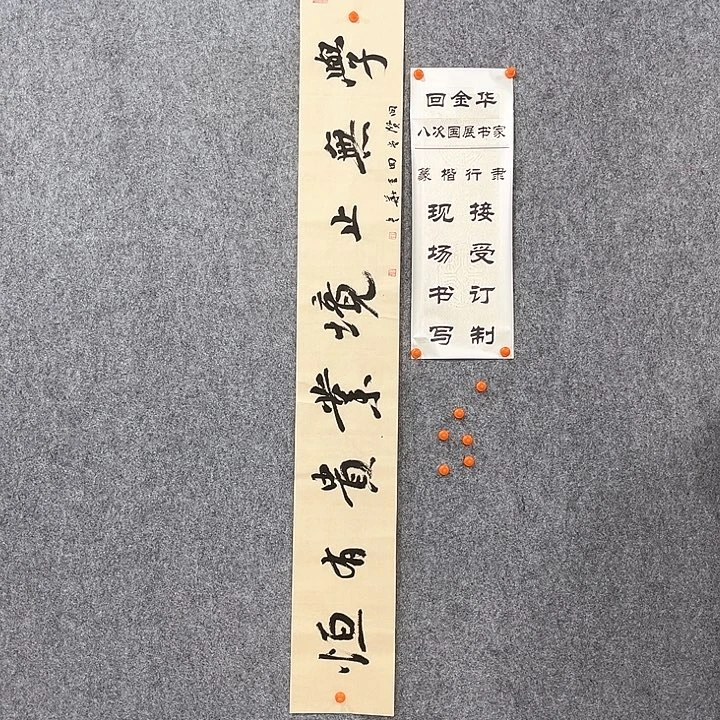 學無止境業貴有恒
回金华
八次国展书家
篆楷行隶
现场书写
接受订制